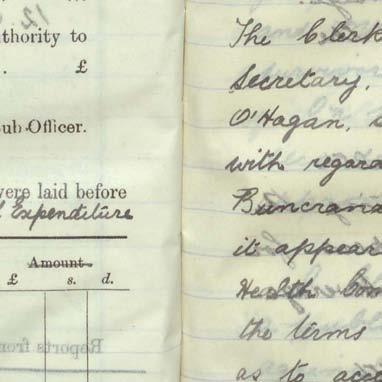 thority to
. £
ub-Officer.
were laid before
Expenditure
Amount
£ s. d.
Reports from
The Clerk
Secretary,
O'Hagan, s
with regard
Buncrana
it appear
Health Com
the terms
as to acce